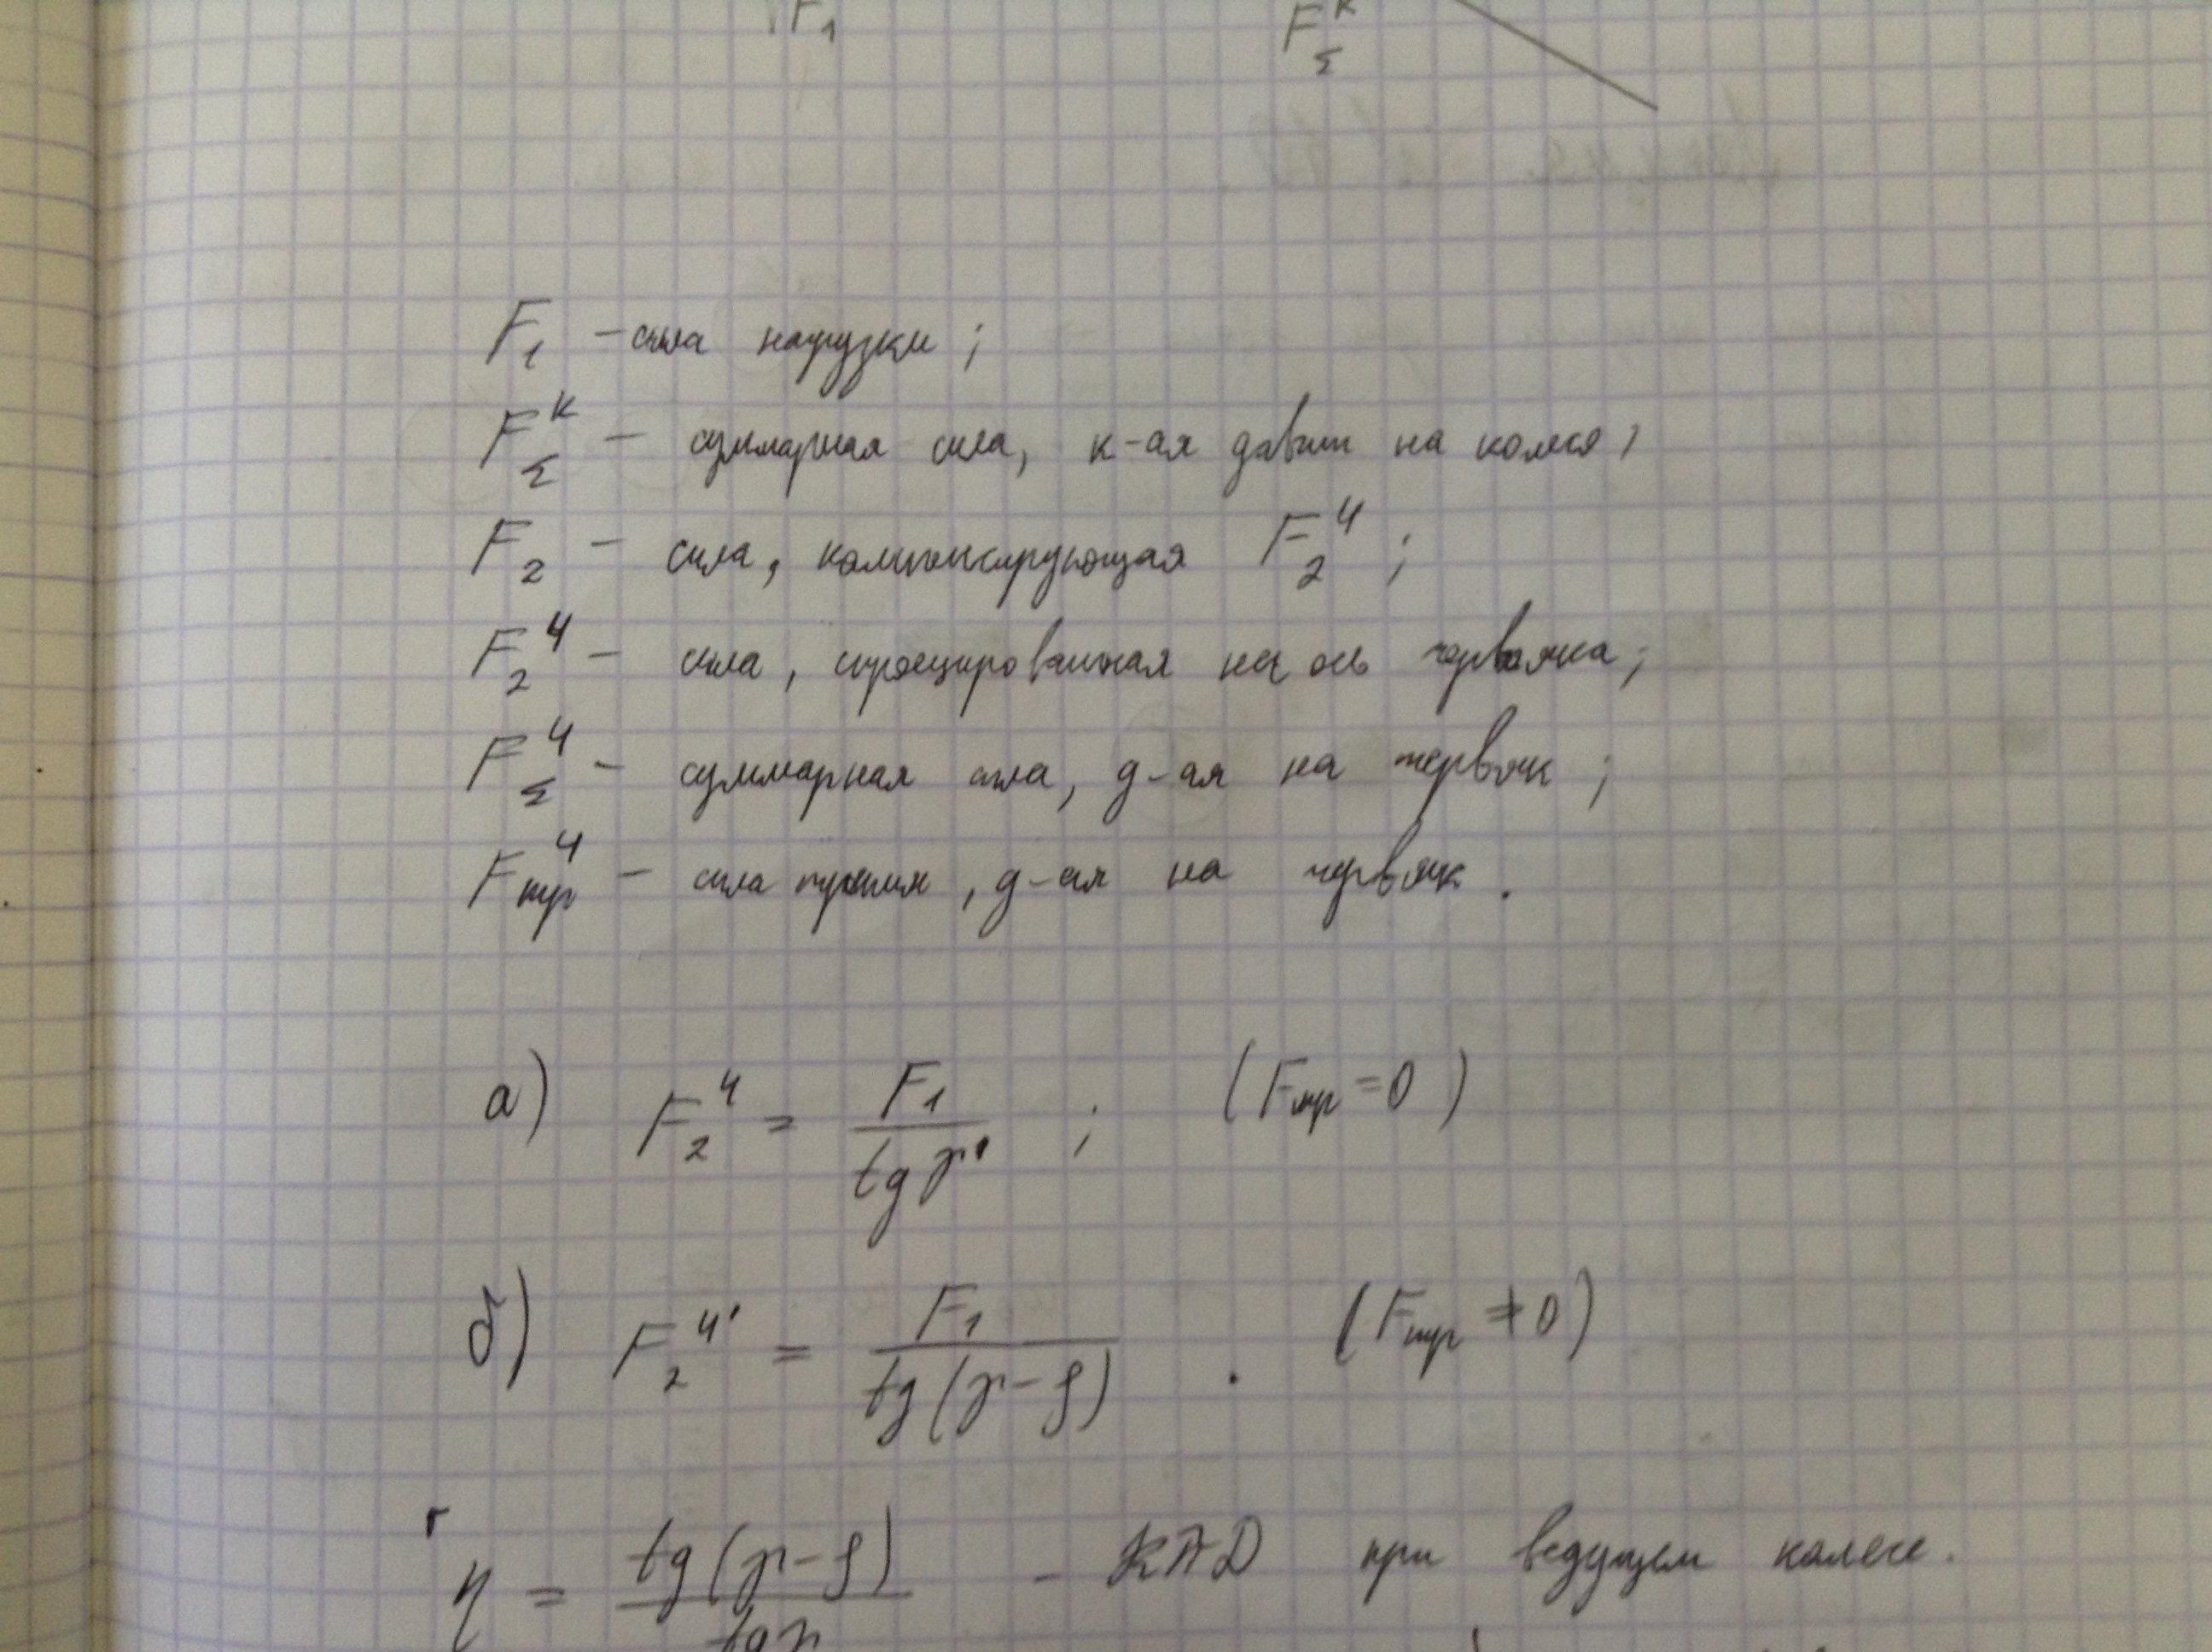 F₁ F_Σ^к
F₁ – сила нагрузки ;
F_Σ^к – суммарная сила, к-ая давит на колесо ;
F₂ – сила, компенсирующая F₂^ч ;
F₂^ч – сила, спроецированная на ось червяка ;
F_Σ^ч – суммарная сила, д-ая на червяк ;
F_тр^ч – сила трения , д-ая на червяк .
а) F₂^ч = F₁ / tg γ ; (F_тр = 0)
б) F₂^ч' = F₁ / tg(γ – ρ) . (F_тр ≠ 0)
η = tg(γ – ρ) / tg γ – КПД при ведущем колесе.